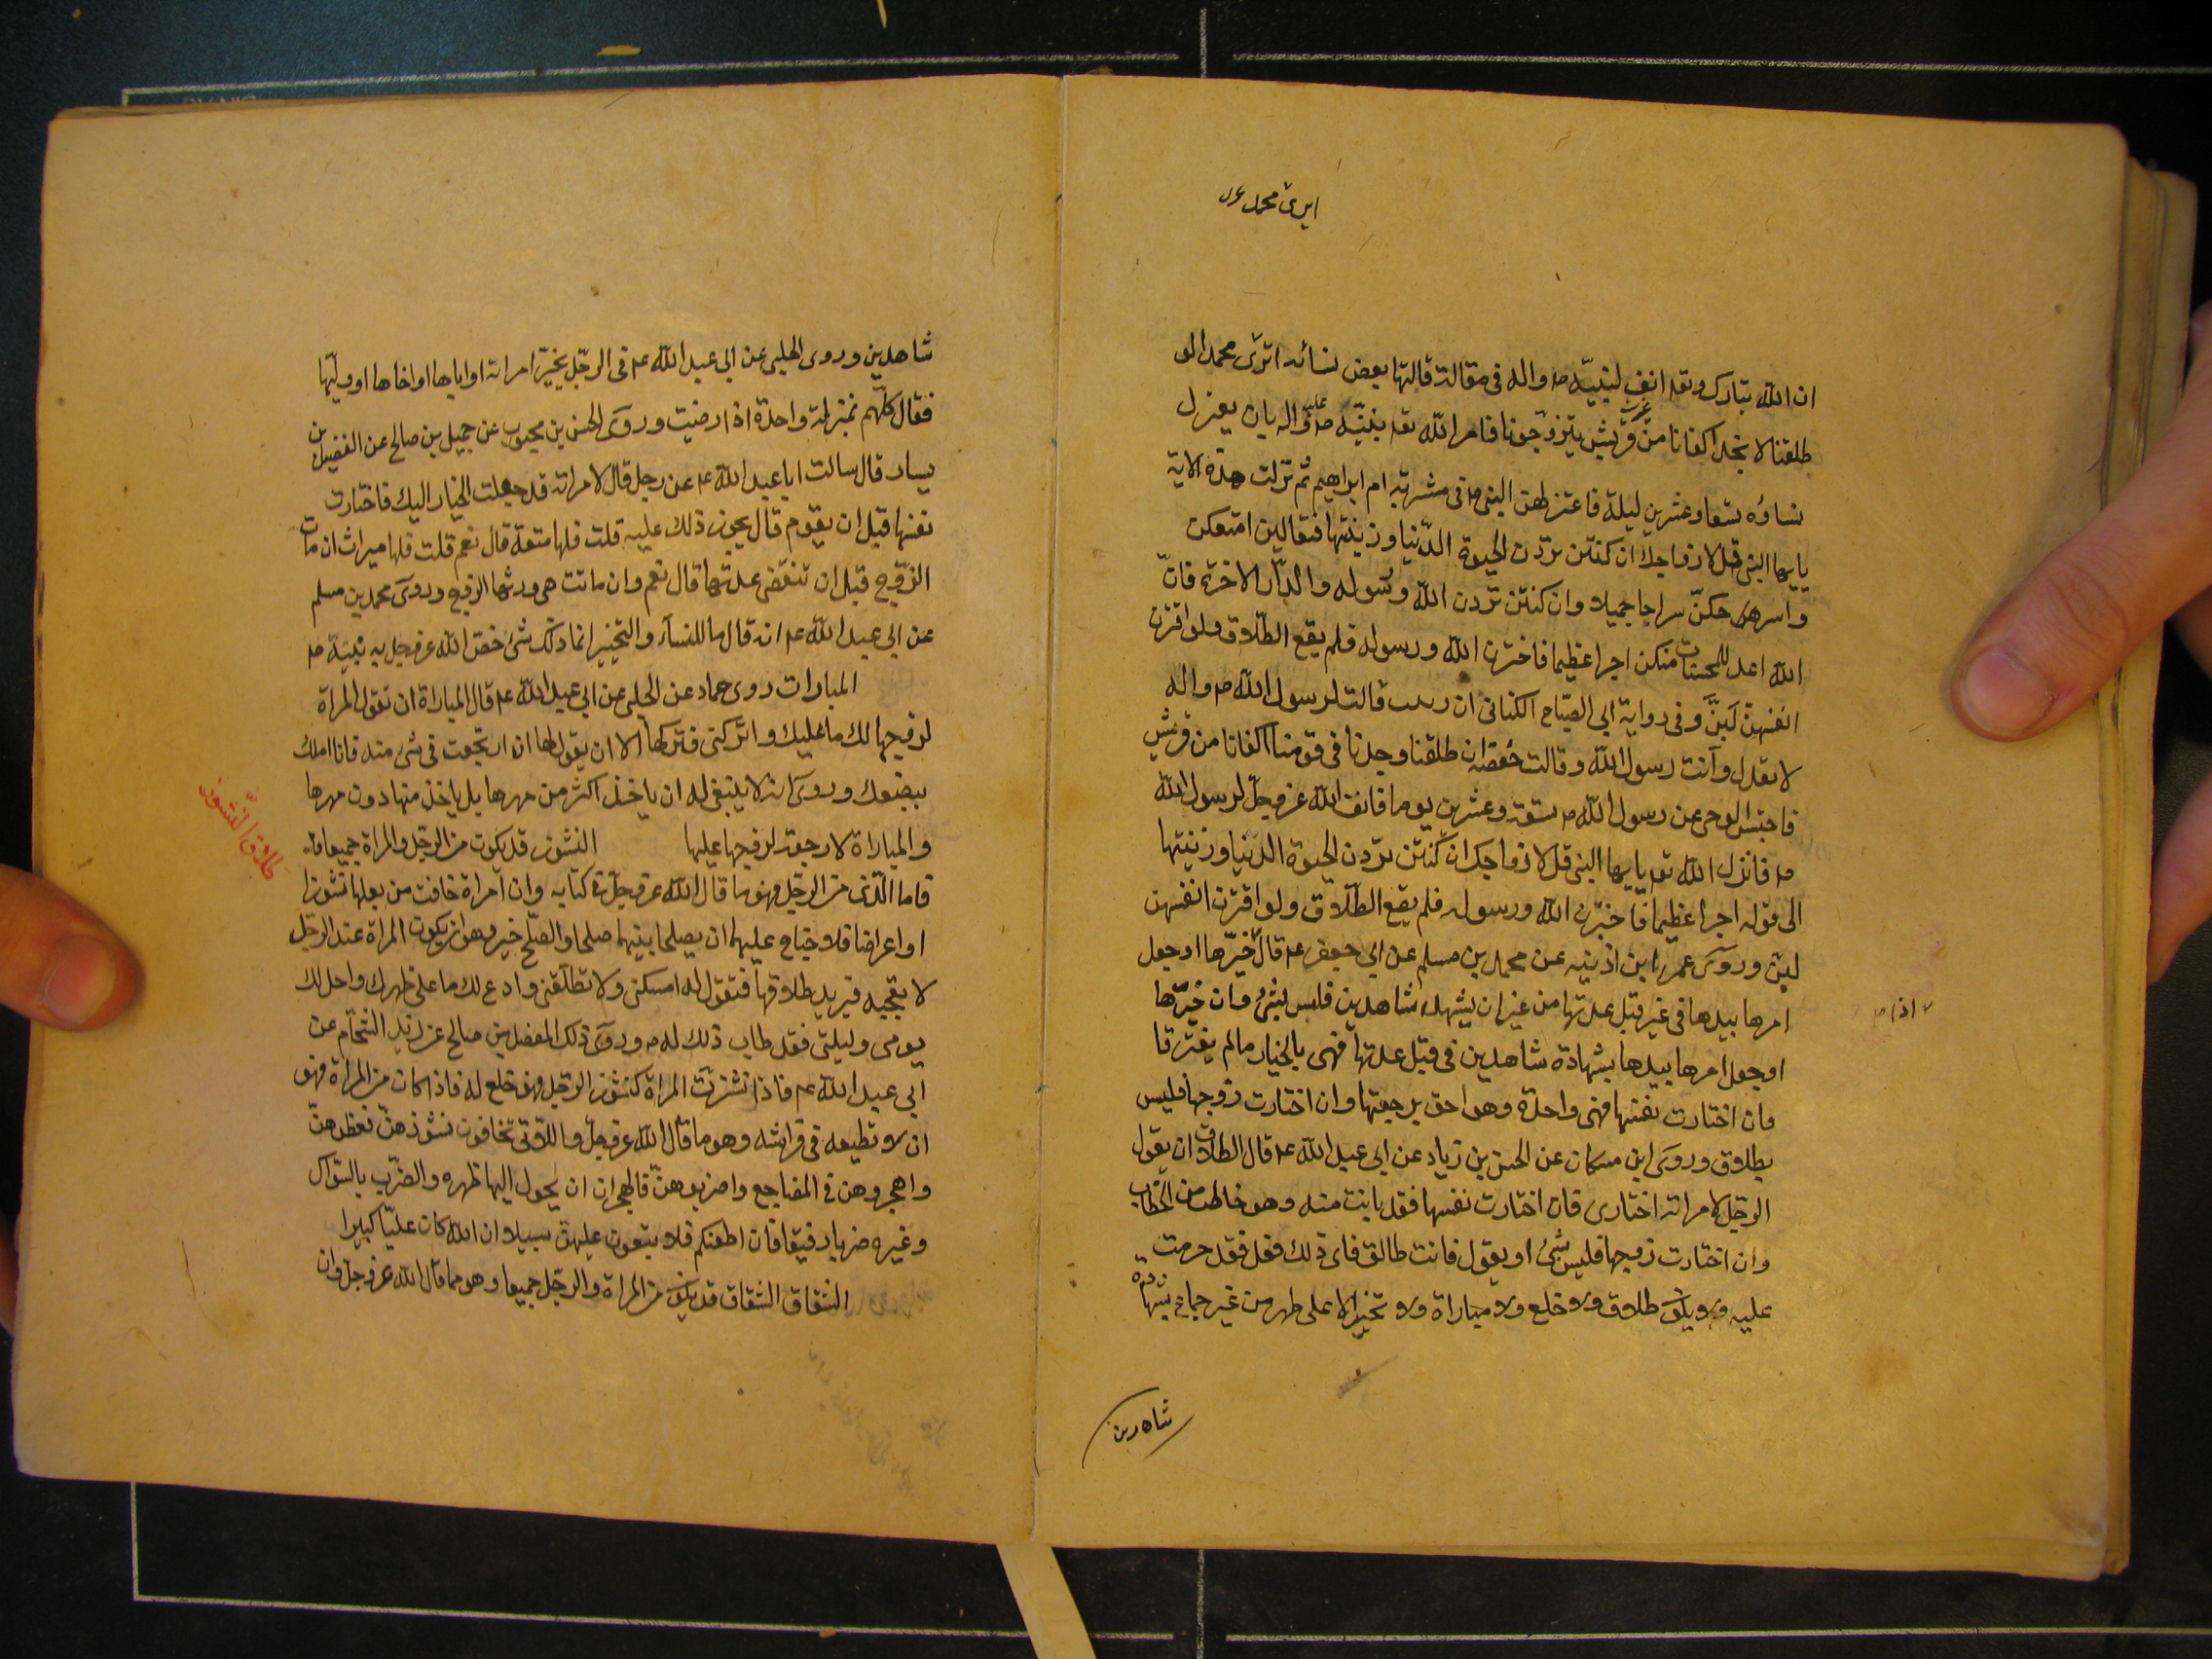 ايرى محمد
ان الله تبارك وتعه انف لنبيّه صه واله فى مقالة قالتها بعض نسائه اترى محمد الو
طلقنا لا نجد اكفانا من قريش يتزوجونا فامر الله تعه بنبيّه صه واله بان يعتزل
نساؤه تسعا وعشرين ليلة فاعتزلهن النبى صه فى مشربة ام ابراهيم ثم نزلت هذه الاية
يايها النبى قل لازواجك ان كنتن تردن الحيوة الدنيا وزينتها فتعالين امتعكن
واسرحكنّ سراحا جميلا وان كنتن تردن الله ورسوله والدّار الاخرة فانّ
الله اعد للمحسنات منكن اجرا عظيما فاخترن الله ورسوله فلم يقع الطّلاق ولو اخترن
انفسهنّ لبنّ وفى رواية ابى الصباح الكنانى ان زينب قالت لرسول الله صه واله
لا تعدل وانت رسول الله وقالت حفصة ان طلقنا وجدنا فى قومنا اكفانا من قريش
فاحتبس الوحى عن رسول الله صه تسعة وعشرين يوما فانف الله عز وجلّ لرسول الله
صه فانزل الله تعه يايها النبى قل لازواجك ان كنتن تردن الحيوة الدنيا وزينتها
الى قوله اجرا عظيما فاخترن الله ورسوله فلم يقع الطّلاق ولو اخترن انفسهن
لبنّ وروى عمر ابن اذينه عن محمد بن مسلم عن ابى جعفر عه قال خيّرها او جعل
امرها بيدها فى غير قبل عدتها من غير ان يشهد شاهدين فليس بشئ فان خيّرها
اذا
او جعل امرها بيدها بشهادة شاهدين فى قبل عدتها فهى بالخيار ما لم يفترقا
فان اختارت نفسها فهى واحدة وهو احق برجعتها وان اختارت زوجها فليس
بطلاق وروى ابن مسكان عن الحسن بن زياد عن ابى عبد الله عه قال الطلاق ان يقول
الرجل لامراته اختارى فان اختارت نفسها فقد بانت منه وهو خاطب من الخطاب
وان اختارت زوجها فليس بشئ او يقول فانت طالق فاى ذلك فعل فقد حرمت
عليه ولا يكون طلاق ولا خلع ولا مباراة ولا تخيير الا على طهر من غير جماع بشهادة
شاهدين
شاهدين وروى الحلبى عن ابى عبد الله عه فى الرجّل يخيّر امراته او اباها او اخاها او وليّها
فقال كلّهم بمنزلة واحدة اذا رضيت وروى الحسن بن محبوب عن جميل بن صالح عن الفضيل بن
يسار قال سالت ابا عبد الله عه عن رجل قال لامراته قد جعلت الخيار اليك فاختارت
نفسها قبل ان يقوم قال يجوز ذلك عليه قلت فلها متعة قال نعم قلت فلها ميراث ان مات
الزّوج قبل ان تنقضى عدتها قال نعم وان ماتت هى ورثها الزوج وروى محمد بن مسلم
عن ابى عبد الله عه انه قال ما للنساء والتخيير انما ذلك شئ خصّ الله عز وجل به نبيّه صه
المبارات روى حماد عن الحلبى عن ابى عبد الله عه قال المباراة ان تقول المراة
لزوجها لك ما عليك واتركنى فتركها الا ان يقول لها ان ارتجعت فى شئ منه فانا املك
ببضعك وروى انه لا ينبغى له ان ياخذ اكثر من مهرها بل ياخذ منها دون مهرها
والمباراة لا رجعة لزوجها عليها النشوز قد يكون من الرجل والمراة جميعا
طلاق النّشوز
فاما الّذى من الرجّل فهو ما قال الله عز وجلّ فى كتابه وان امراة خافت من بعلها نشوزا
او اعراضا فلا جناح عليهما ان يصلحا بينهما صلحا والصلح خير وهو ان يكون المراة عند الرجّل
لا تعجبه فيريد طلاقها فتقول له امسكنى ولا تطلقنى وادع لك ما على ظهرك واحل لك
يومى وليلتى فقد طاب ذلك له وروى ذلك المفضل بن صالح عن زيد الشّحّام عن
ابى عبد الله عه فاذا نشزت المراة كنشوز الرجّل فهو خلع له فاذا كان من المراة فهو
ان لا تطيعه فى فراشه وهو ما قال الله عز وجلّ واللاتى تخافون نشوزهنّ فعظوهنّ
واهجروهن فى المضاجع واضربوهنّ فالهجران ان يحول اليها ظهره والضرب بالسّواك
وغيره ضربا رفيقا فان اطعنكم فلا تبتغون عليهنّ سبيلا ان الله كان عليّا كبيرا
الشقاق الشقاق قد يكون من المراة والرجل جميعا وهو مما قال الله عز وجلّ وان